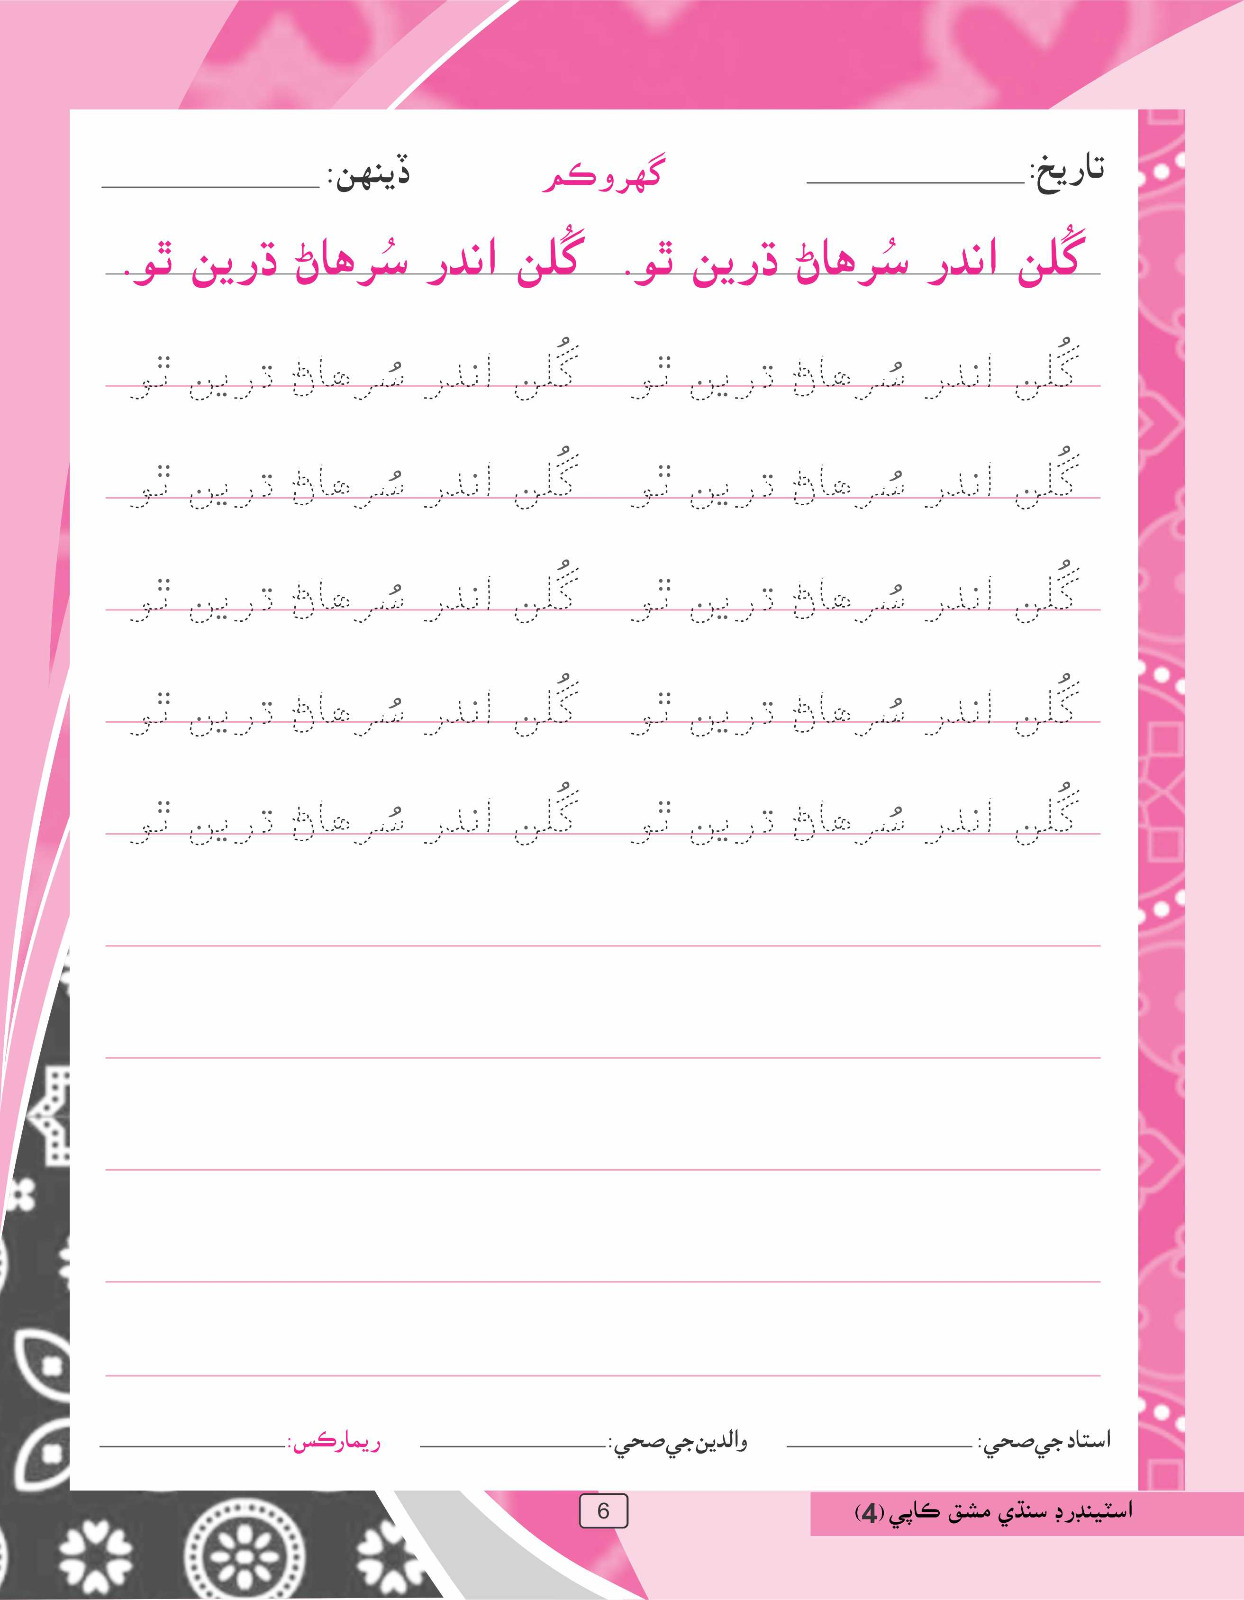 تاريخ: گهرو ڪم ڏينهن:
گُلن اندر سُرهاڻ ڌرين ٿو. گُلن اندر سُرهاڻ ڌرين ٿو.
گُلن اندر سُرهاڻ ڌرين ٿو گُلن اندر سُرهاڻ ڌرين ٿو
گُلن اندر سُرهاڻ ڌرين ٿو گُلن اندر سُرهاڻ ڌرين ٿو
گُلن اندر سُرهاڻ ڌرين ٿو گُلن اندر سُرهاڻ ڌرين ٿو
گُلن اندر سُرهاڻ ڌرين ٿو گُلن اندر سُرهاڻ ڌرين ٿو
گُلن اندر سُرهاڻ ڌرين ٿو گُلن اندر سُرهاڻ ڌرين ٿو
استاد جي صحي: والدين جي صحي: ريمارڪس:
اسٽينڊرڊ سنڌي مشق ڪاپي (4) 6